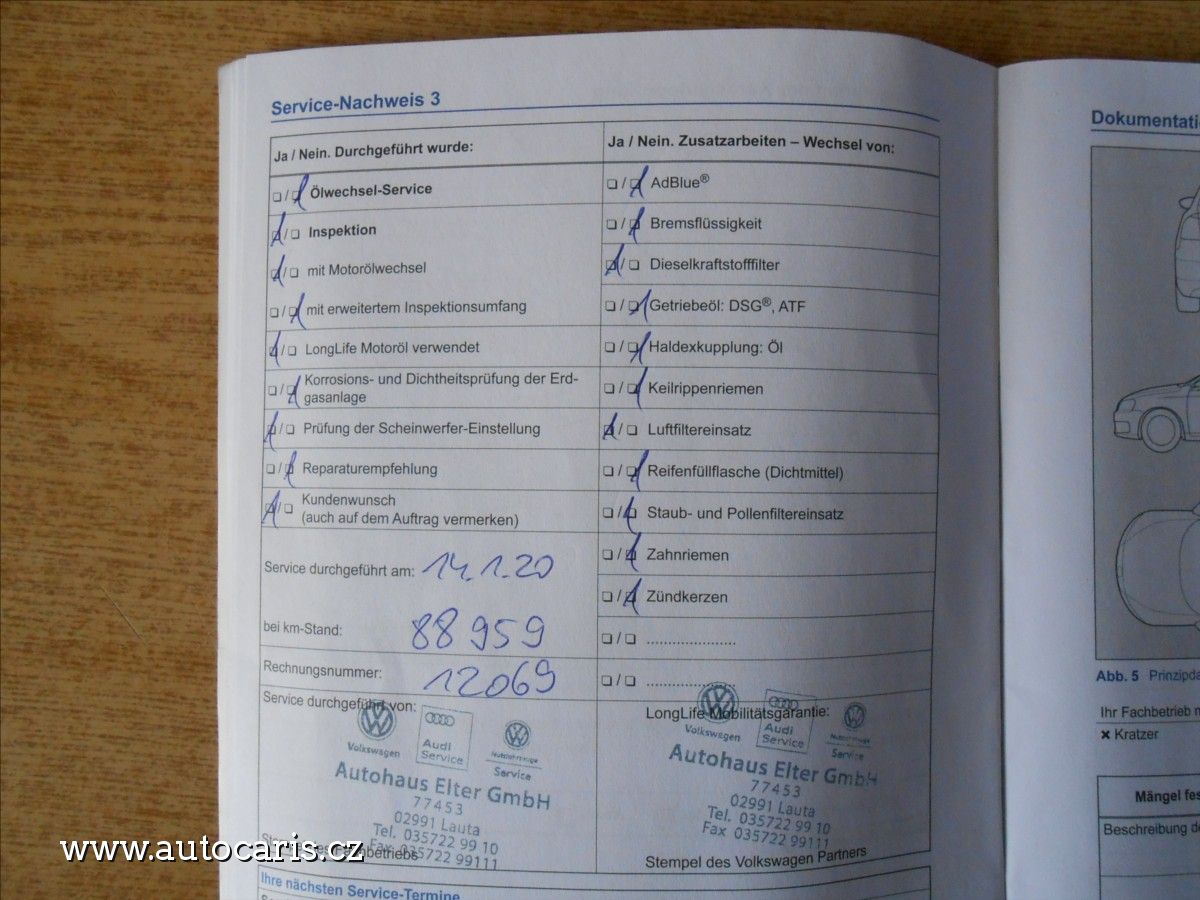 Service-Nachweis 3
Ja / Nein. Durchgeführt wurde:
❏ / ❏ Ölwechsel-Service
❏ / ❏ Inspektion
❏ / ❏ mit Motorölwechsel
❏ / ❏ mit erweitertem Inspektionsumfang
❏ / ❏ LongLife Motoröl verwendet
❏ / ❏ Korrosions- und Dichtheitsprüfung der Erd-
gasanlage
❏ / ❏ Prüfung der Scheinwerfer-Einstellung
❏ / ❏ Reparaturempfehlung
❏ / ❏ Kundenwunsch
(auch auf dem Auftrag vermerken)
Service durchgeführt am: 14.1.20
bei km-Stand: 88 959
Rechnungsnummer: 12069
Service durchgeführt von:
Volkswagen
Audi
Service
Nutzfahrzeuge
Service
Autohaus Elter GmbH
77453
02991 Lauta
Tel. 035722 99 10
Fax 035722 99111
Stempel des Fachbetriebs
Ja / Nein. Zusatzarbeiten – Wechsel von:
❏ / ❏ AdBlue®
❏ / ❏ Bremsflüssigkeit
❏ / ❏ Dieselkraftstofffilter
❏ / ❏ Getriebeöl: DSG®, ATF
❏ / ❏ Haldexkupplung: Öl
❏ / ❏ Keilrippenriemen
❏ / ❏ Luftfiltereinsatz
❏ / ❏ Reifenfüllflasche (Dichtmittel)
❏ / ❏ Staub- und Pollenfiltereinsatz
❏ / ❏ Zahnriemen
❏ / ❏ Zündkerzen
❏ / ❏ ......................
❏ / ❏ ......................
LongLife Mobilitätsgarantie:
Volkswagen
Audi
Service
Nutzfahrzeuge
Service
Autohaus Elter GmbH
77453
02991 Lauta
Tel. 035722 99 10
Fax 035722 99111
Stempel des Volkswagen Partners
Ihre nächsten Service-Termine
Dokumentati
Abb. 5 Prinzipda
Ihr Fachbetrieb m
✖ Kratzer
Mängel fes
Beschreibung de
www.autocaris.cz